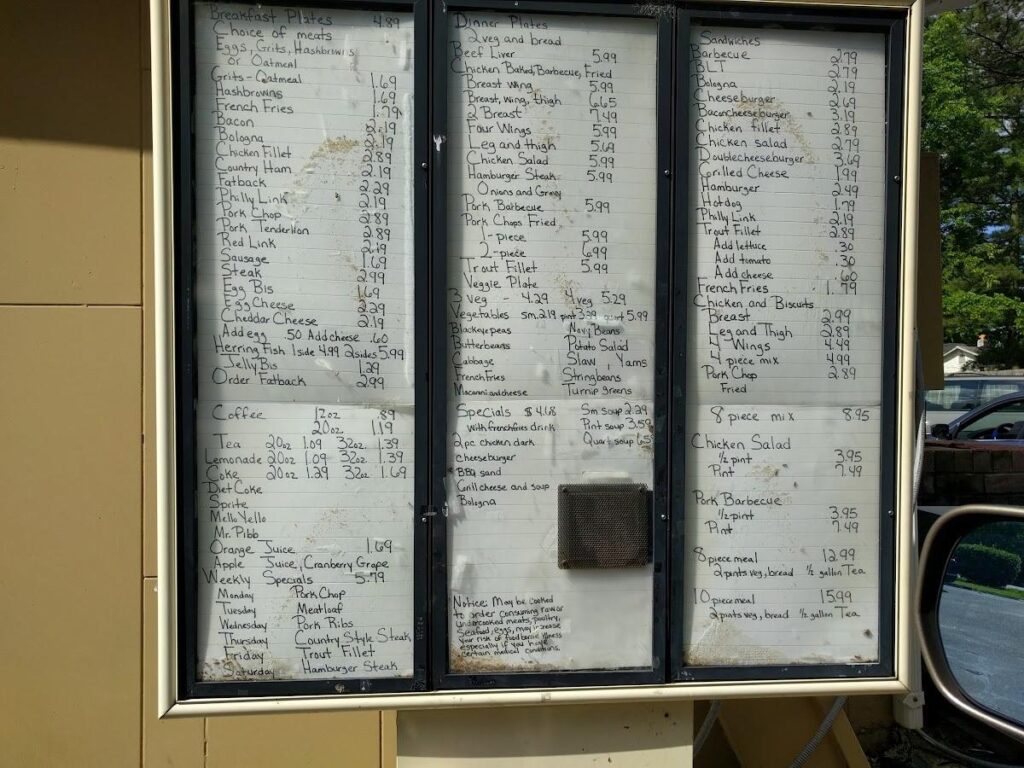 Breakfast Plates 4.89
Choice of meats
Eggs, Grits, Hashbrowns
or Oatmeal
Grits - Oatmeal 1.69
Hashbrowns 1.69
French Fries 1.79
Bacon 2.19
Bologna 2.19
Chicken Fillet 2.89
Country Ham 2.19
Fatback 2.29
Philly Link 2.19
Pork Chop 2.89
Pork Tenderlion 2.89
Red Link 2.19
Sausage 1.69
Steak 2.99
Egg Bis 1.69
Egg Cheese 2.29
Cheddar Cheese 2.19
Add egg .50 Add cheese .60
Herring Fish 1 side 4.99 2 sides 5.99
Jelly Bis 1.29
Order Fatback 2.99
Coffee 12oz .89
20oz 1.19
Tea 20oz 1.09 32oz 1.39
Lemonade 20oz 1.09 32oz 1.39
Coke 20oz 1.29 32oz 1.69
Diet Coke
Sprite
Mello Yello
Mr. Pibb
Orange Juice 1.69
Apple Juice, Cranberry Grape
Weekly Specials 5.79
Monday Pork Chop
Tuesday Meatloaf
Wednesday Pork Ribs
Thursday Country Style Steak
Friday Trout Fillet
Saturday Hamburger Steak
Dinner Plates
2 veg and bread
Beef Liver 5.99
Chicken Baked, Barbecue, Fried
Breast wing 5.99
Breast, wing, thigh 6.65
2 Breast 7.49
Four Wings 5.99
Leg and thigh 5.69
Chicken Salad 5.99
Hamburger Steak 5.99
Onions and Gravy
Pork Barbecue 5.99
Pork Chops Fried
1-piece 5.99
2-piece 6.99
Trout Fillet 5.99
Veggie Plate
3 veg - 4.29 4 veg 5.29
Vegetables sm. 2.19 pint 3.29 quart 5.99
Blackeye peas Navy Beans
Butterbeans Potato Salad
Cabbage Slaw, Yams
French Fries Stringbeans
Macaroni and cheese Turnip greens
Specials $4.68 Sm soup 2.29
with french fries drink Pint soup 3.59
2 pc chicken dark Quart soup
cheeseburger
BBQ sand
Grill cheese and soup
Bologna
Notice: May be cooked
to order consuming raw or
undercooked meats, poultry,
Seafood, eggs, may increase
your risk of food borne illness
especially if you have
certain medical conditions.
Sandwiches
Barbecue 2.79
BLT 2.79
Bologna 2.19
Cheeseburger 2.69
Baconcheeseburger 3.19
Chicken fillet 2.89
Chicken salad 2.79
Doublecheeseburger 3.69
Grilled Cheese 1.99
Hamburger 2.49
Hotdog 1.79
Philly Link 2.19
Trout Fillet 2.89
Add lettuce .30
Add tomato .30
Add cheese .60
French Fries 1.79
Chicken and Biscuits
Breast 2.99
Leg and Thigh 2.89
4 Wings 4.49
4 piece mix 4.99
Pork Chop 2.89
Fried
8 piece mix 8.95
Chicken Salad
1/2 pint 3.95
Pint 7.49
Pork Barbecue
1/2 pint 3.95
Pint 7.49
8 piece meal 12.99
2 pints veg, bread 1/2 gallon Tea
10 piece meal 15.99
2 pints veg, bread 1/2 gallon Tea